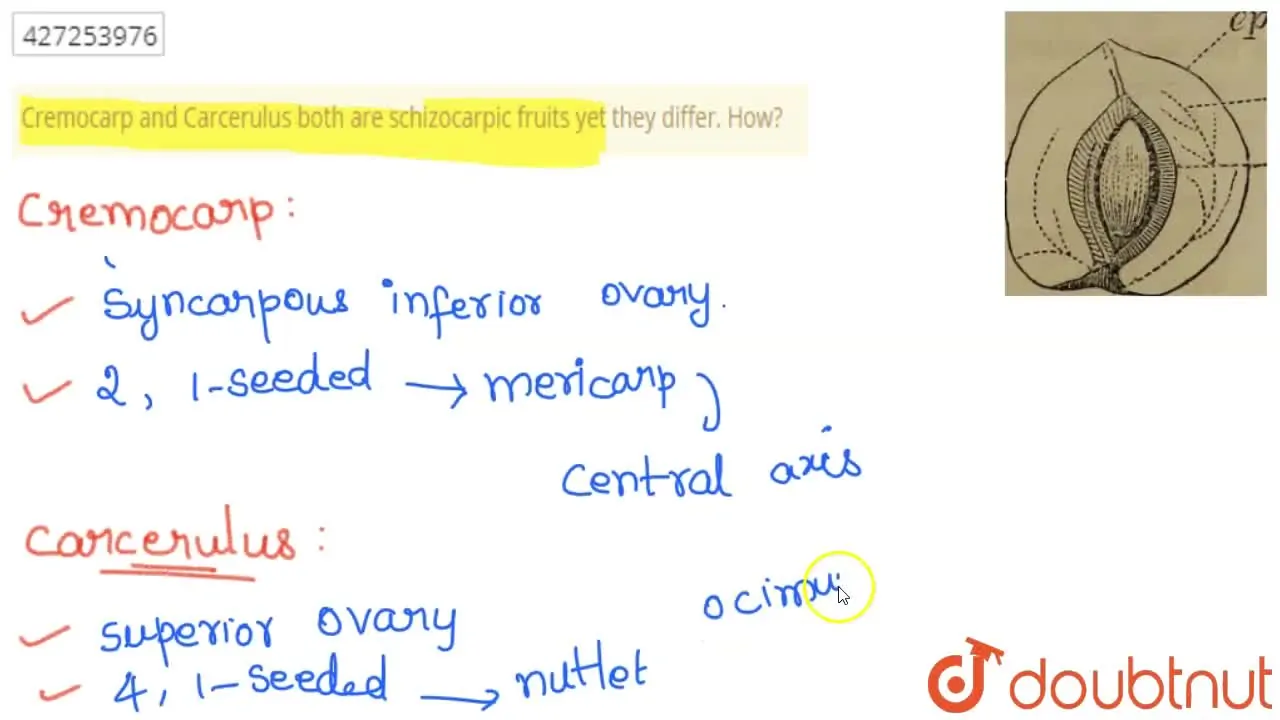 427253976
ep
Cremocarp and Carcerulus both are schizocarpic fruits yet they differ. How?
Cremocarp :
Syncarpous inferior ovary.
2, 1-seeded → mericarp
Central axis
Carcerulus :
ocimu
superior ovary
4, 1-seeded → nutlet
doubtnut